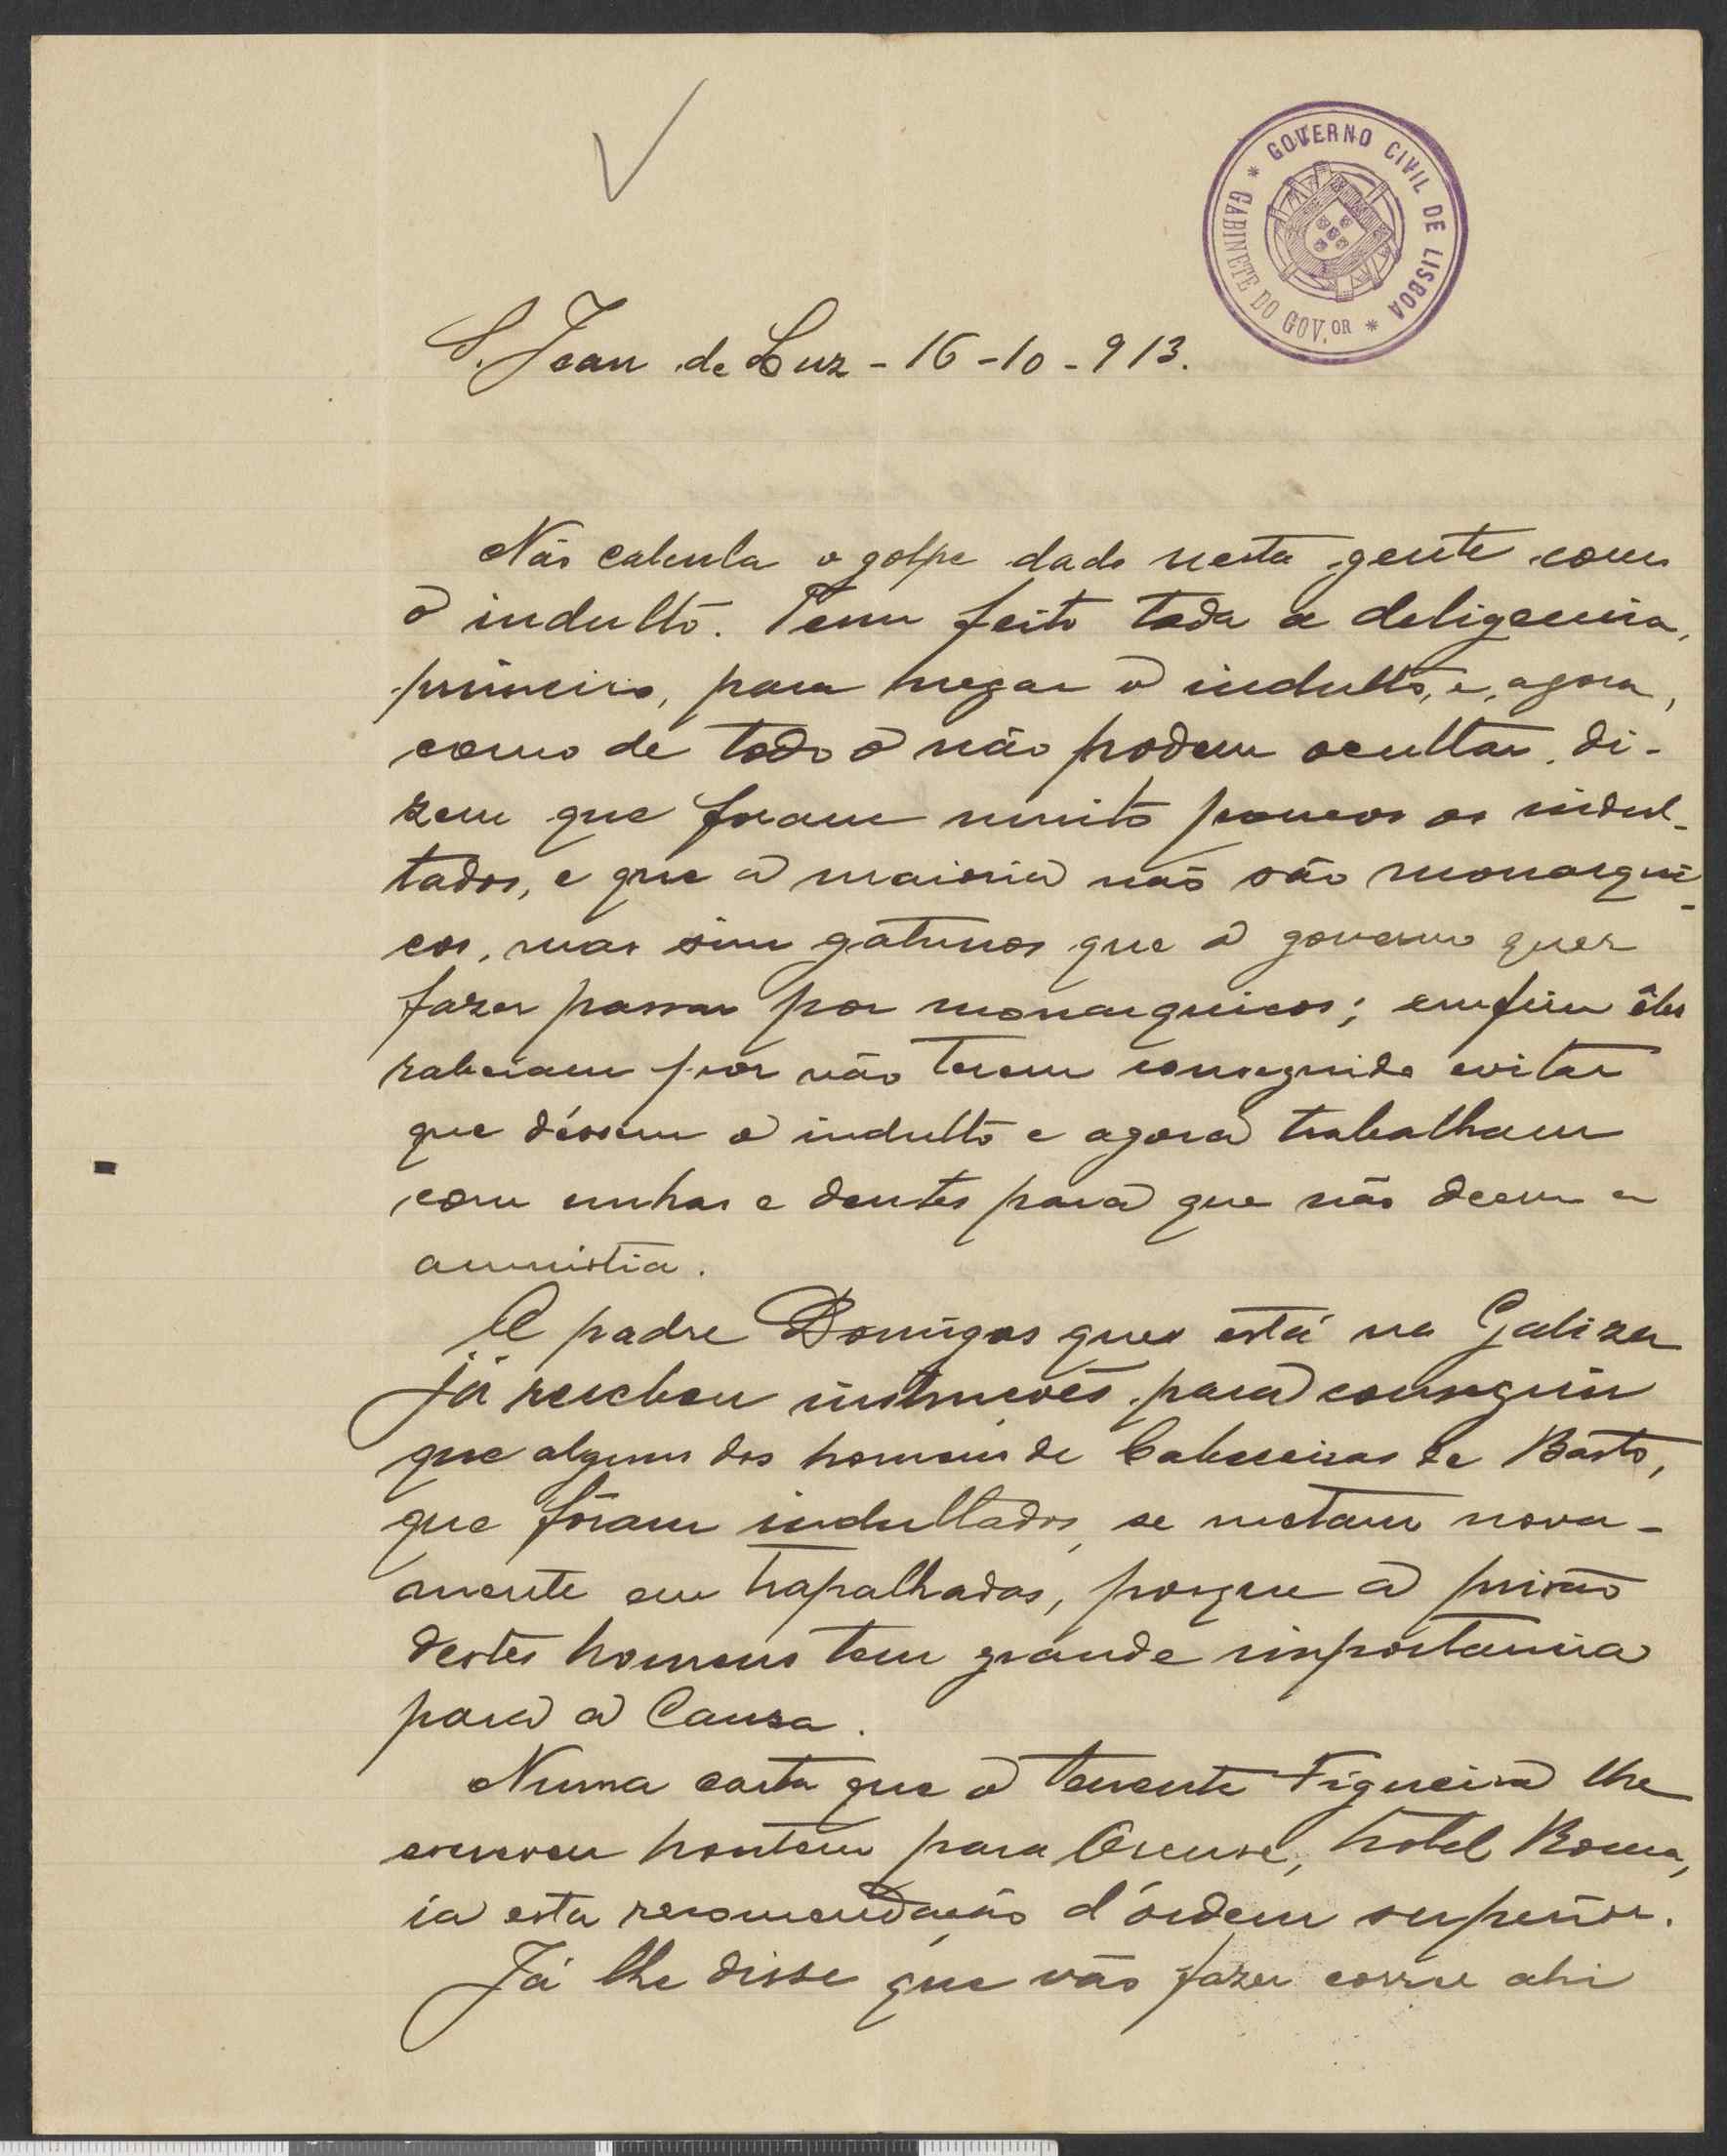 * GOVERNO CIVIL DE LISBOA *
GABINETE DO GOV.OR
S. Jean de Luz - 16 - 10 - 913.
Não calcula o golpe dado nesta gente com
o indulto. Tem feito toda a deligencia,
primeiro, para negar o indulto, e, agora,
como de todo o não podem ocultar, di-
zem que foram muito poucos os indul-
tados, e que a maioria não são monarqui-
cos, mas sim gatunos que o governo quer
fazer passar por monarquicos; emfim êles
rabeiam por não terem conseguido evitar
que déssem o indulto e agora trabalham
com unhas e dentes para que não deem a
amnistia.
O padre Domingos que está na Galiza
já recebeu instrucões para conseguir
que alguns dos homens de Cabeceiras de Basto,
que fôram indultados, se metam nova-
mente em trapalhadas, porque a prisão
destes homens tem grande importancia
para a Causa.
Numa carta que o tenente Figueira lhe
escreveu hontem para Orense, hotel Roma,
ia esta recomendação d'órdem superior.
Já lhe disse que vão fazer correr ahi